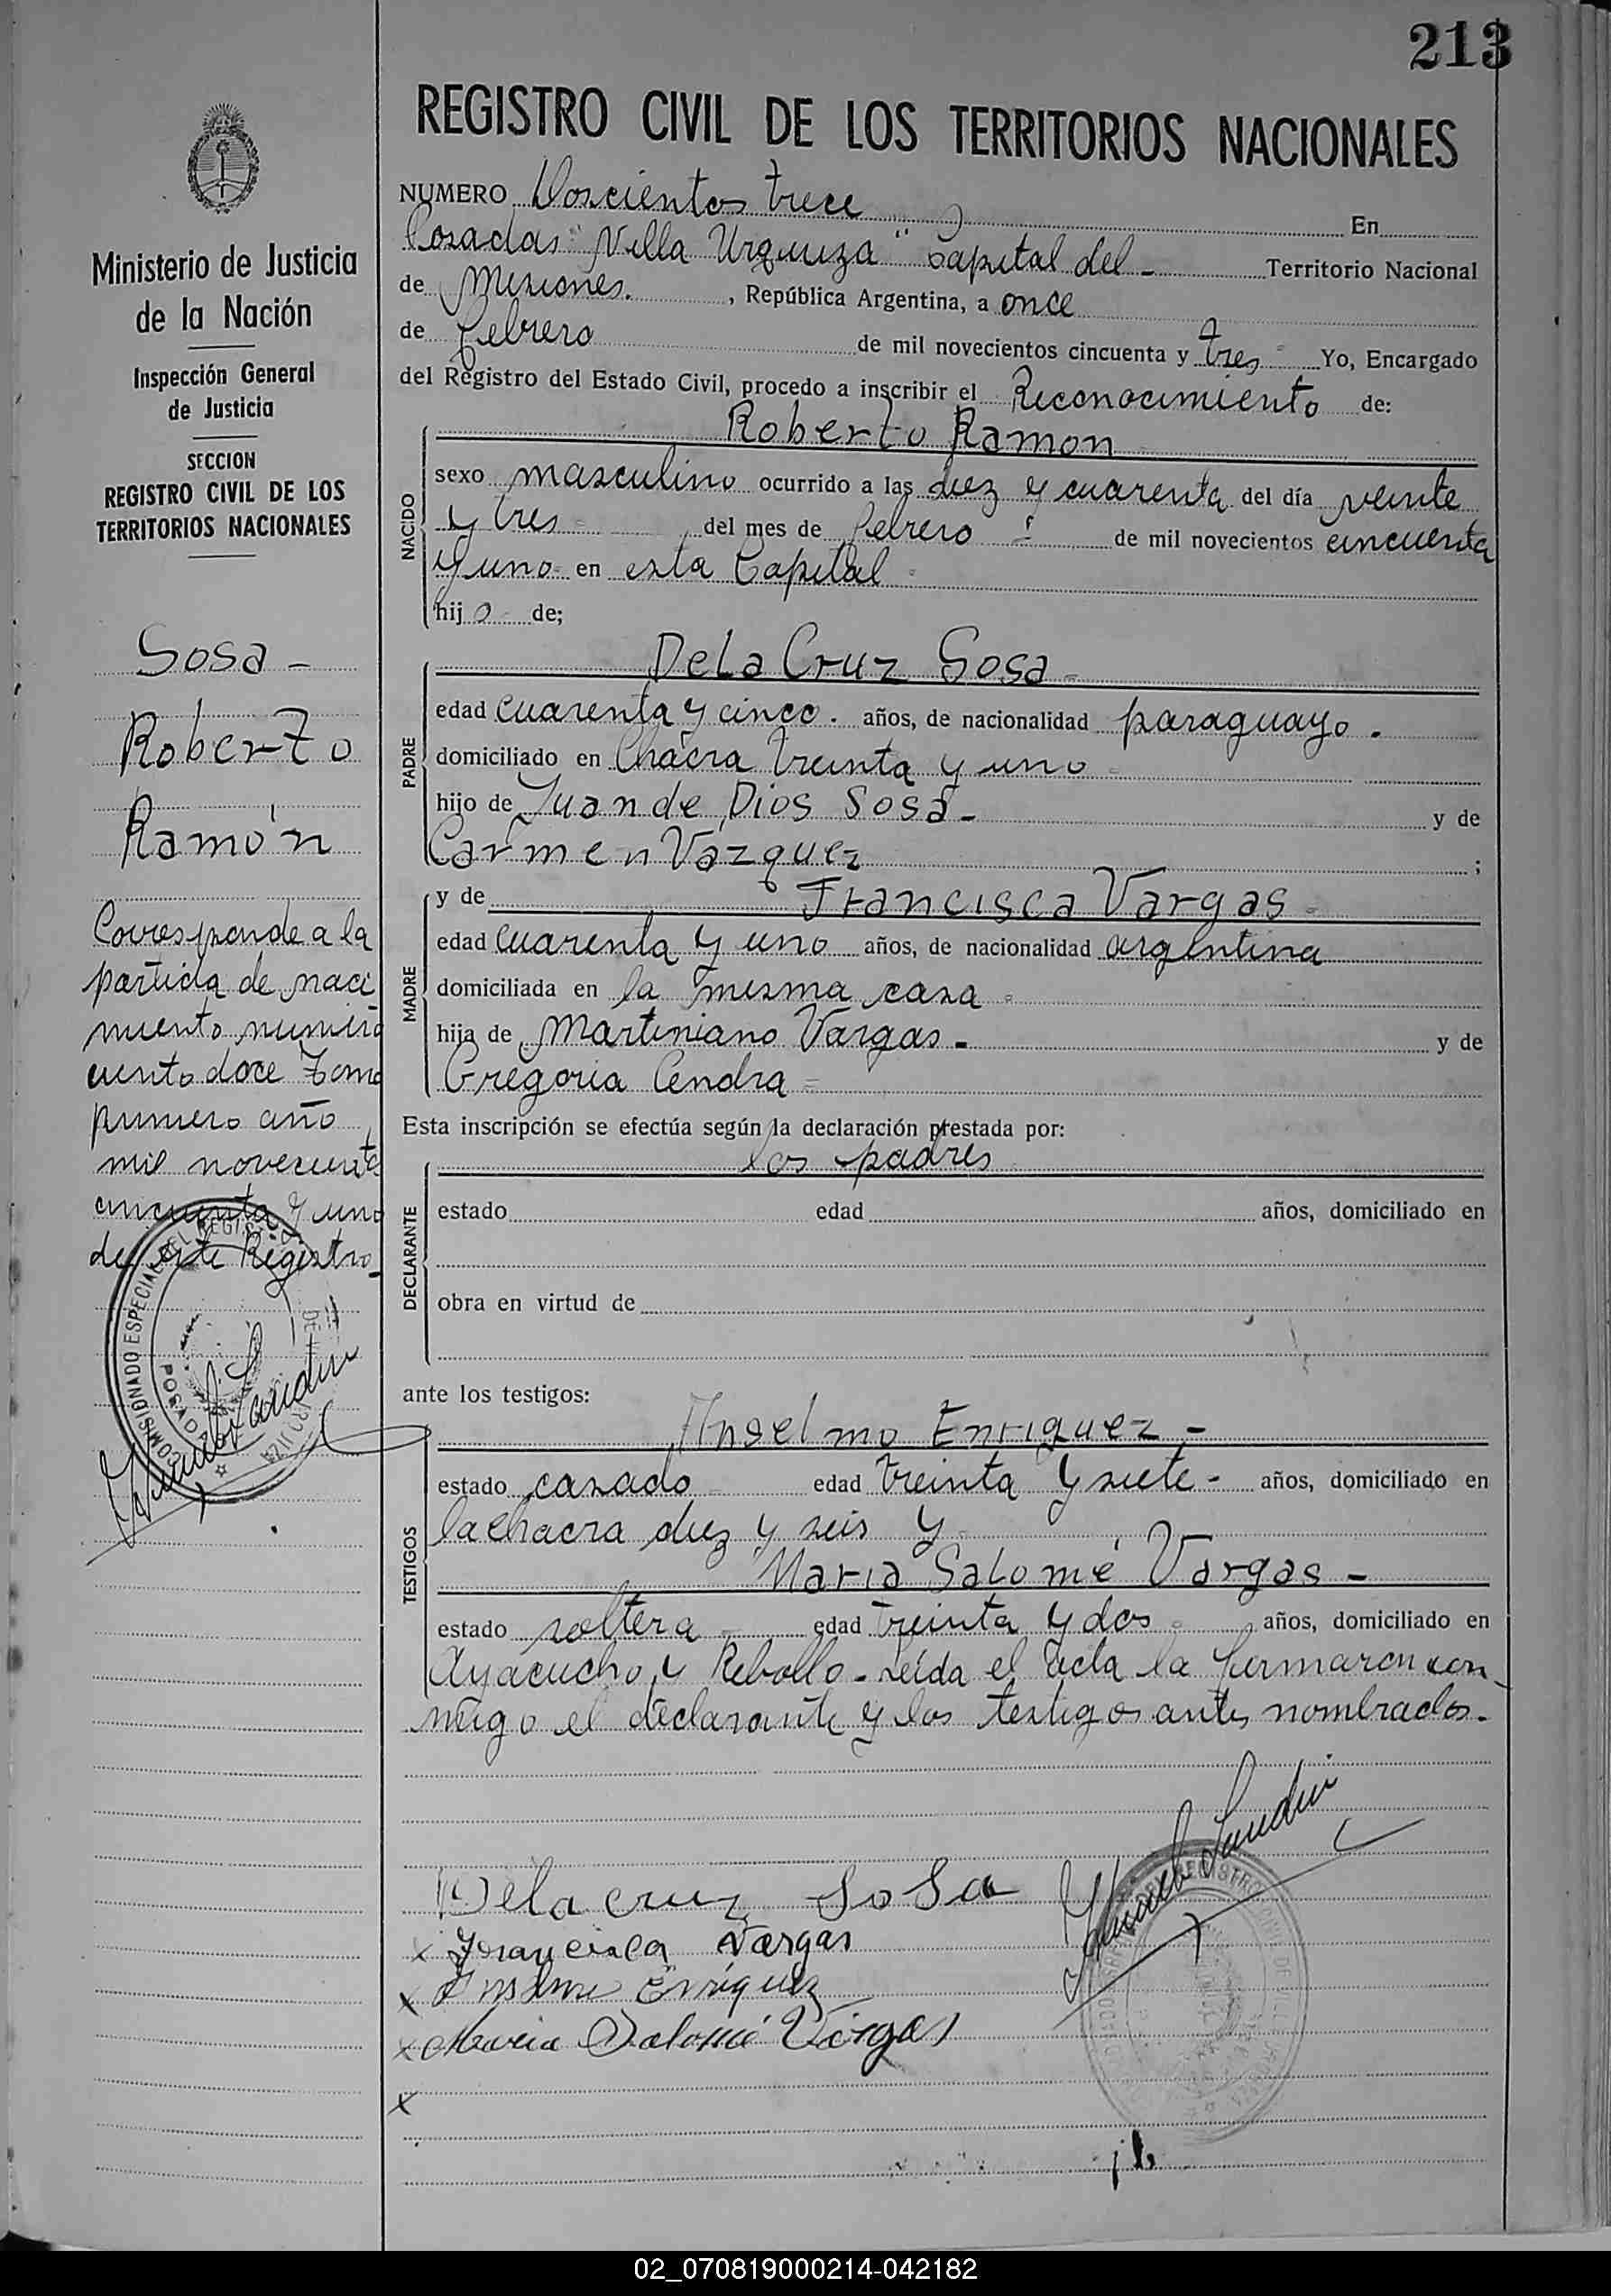 213
REGISTRO CIVIL DE LOS TERRITORIOS NACIONALES
Ministerio de Justicia
de la Nación
Inspección General
de Justicia
SECCION
REGISTRO CIVIL DE LOS
TERRITORIOS NACIONALES
Sosa -
Roberto
Ramón
Corresponde a la
partida de naci
miento numero
ciento doce Tomo
primero año
mil novecientos
cincuenta y uno
de este Registro_
COMISIONADO ESPECIAL DEL REGISTRO
POSADAS
NUMERO Doscientos trece En
Posadas "Villa Urquiza" Capital del - Territorio Nacional
de Misiones. , República Argentina, a once
de febrero de mil novecientos cincuenta y tres Yo, Encargado
del Registro del Estado Civil, procedo a inscribir el Reconocimiento de:
Roberto Ramon
NACIDO
sexo masculino ocurrido a las diez y cuarenta del día veinte
y tres del mes de febrero de mil novecientos cincuenta
y uno en esta Capital
hijo de;
De La Cruz Sosa
PADRE
edad cuarenta y cinco. años, de nacionalidad paraguayo.
domiciliado en Chacra treinta y uno
hijo de Juan de Dios Sosa - y de
Carmen Vázquez ;
y de Francisca Vargas
MADRE
edad cuarenta y uno años, de nacionalidad argentina
domiciliada en la misma casa
hija de Martiniano Vargas. y de
Gregoria Cendra
Esta inscripción se efectúa según la declaración prestada por:
los padres
DECLARANTE
estado edad años, domiciliado en
obra en virtud de
ante los testigos:
Anselmo Enriquez -
TESTIGOS
estado casado edad treinta y siete - años, domiciliado en
la chacra diez y seis y
Maria Salomé Vargas -
estado soltera edad treinta y dos años, domiciliado en
Ayacucho y Rebollo - leída el acta la firmaron con
migo el declarante y los testigos antes nombrados.
Dela cruz Sosa
x Francisca Vargas
x Anselmo Enriquez
x Maria Salomé Vargas
x
02_070819000214-042182